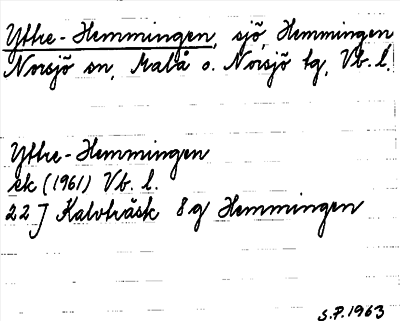 Yttre-Hemmingen, sjö, Hemmingen
Norsjö sn, Malå o. Norsjö tg, Vb. l.
Yttre-Hemmingen
ek (1961) Vb. l.
22 J Kalvträsk 8 g Hemmingen
S.P. 1963